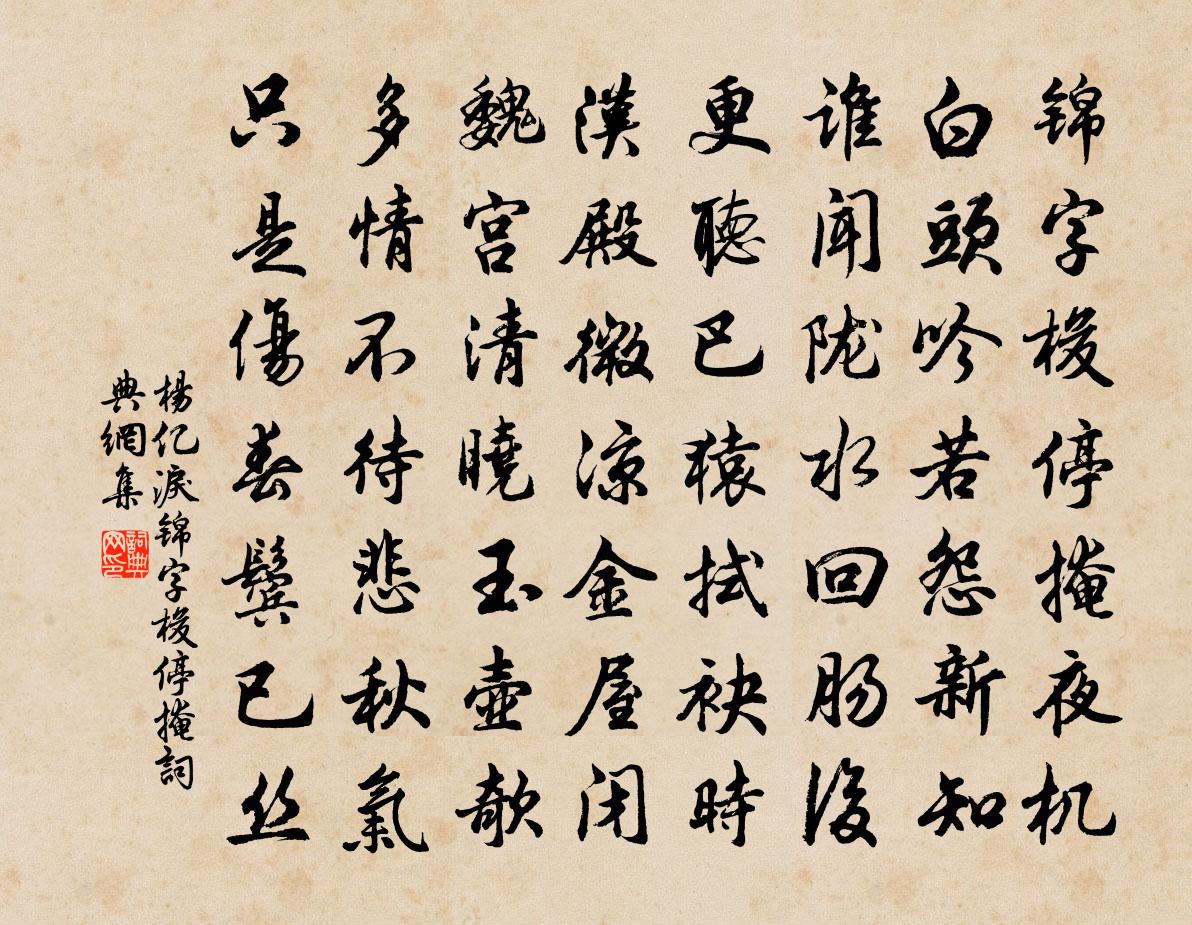 锦字梭停掩夜机
白頭吟若怨新知
谁闻陇水回肠後
更聽巴猿拭袂時
漢殿微凉金屋闭
魏宫清曉玉壺欹
多情不待悲秋氣
只是傷春鬓已丝
楊亿淚锦字梭停掩詞
典網集
詞典
网印